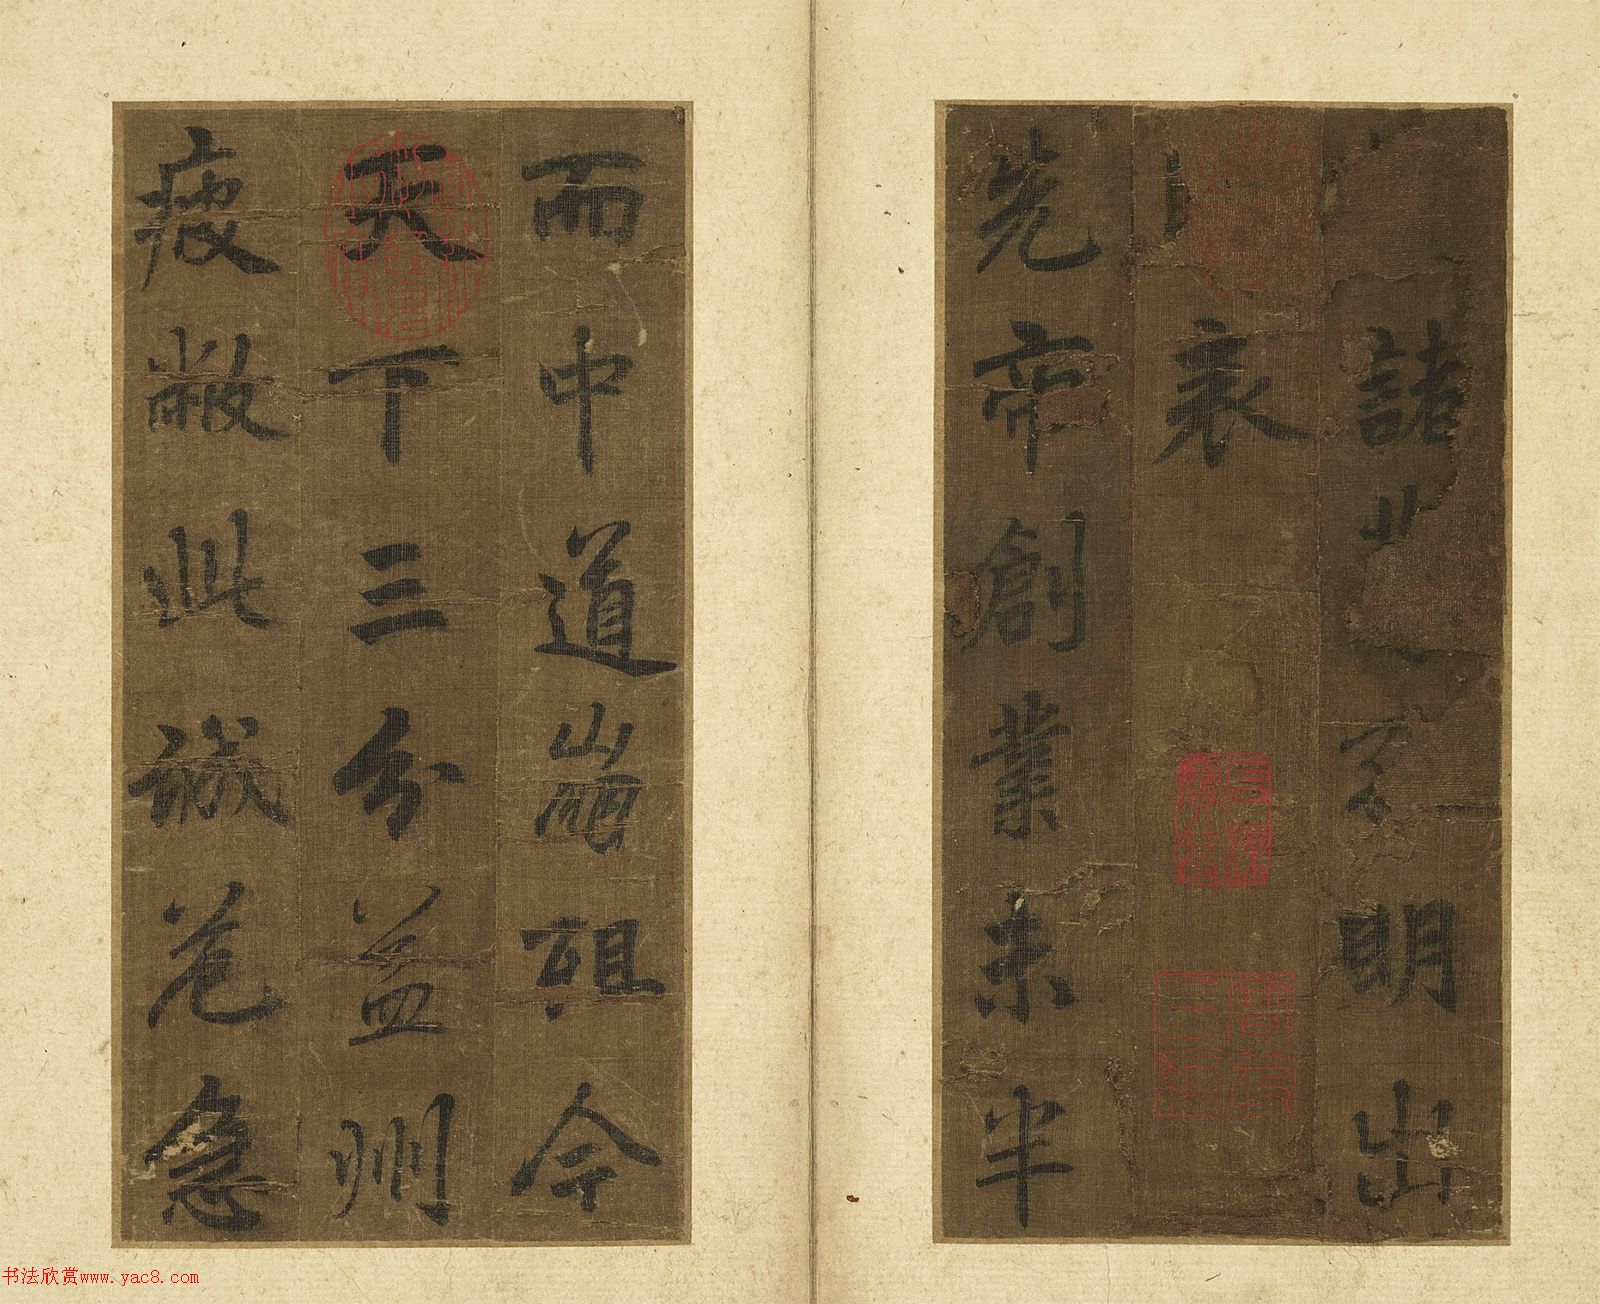 諸 明出
表
先帝創業未半
而中道崩殂今
天下三分益州
疲敝此誠危急
书法欣赏www.yac8.com